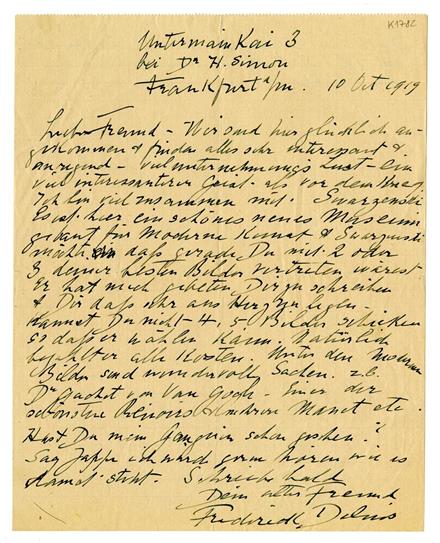 K1782
Untermainkai 3
bei Dr H. Simon
Frankfurt a/m. 10 Oct 1919
Lieber Freund – Wir sind hier glücklich an-
gekommen & finden alles sehr interessant &
anregend – viel unternehmungs Lust – ein
viel interessanterer Geist als vor dem Krieg.
Ich bin viel zusammen mit Swarzenski
Es ist hier ein schönes neues Museum
gebaut für Moderne Kunst & Swarzenski
möchte daß gerade Du mit 2 oder
3 deiner besten Bilder vertreten wärest
Er hat mich gebeten, Dir zu schreiben
& Dir daß sehr ans Herz zu legen –
Kannst Du nicht 4, 5 Bilder schicken
so daß er wählen kann. Natürlich
bezahlt er alle Kosten. Unter den neueren
Bilder sind wundervolle Sachen. z.b.
Dr Gachet von Van Gogh – Einer der
schönsten Renoirs & mehrere Manet etc.
Hast Du mein Gauguin schon gesehen?
Sag Jappe ich würde gern hören wie es
damit steht. Schreibe bald
Dein alter Freund
Frederick Delius